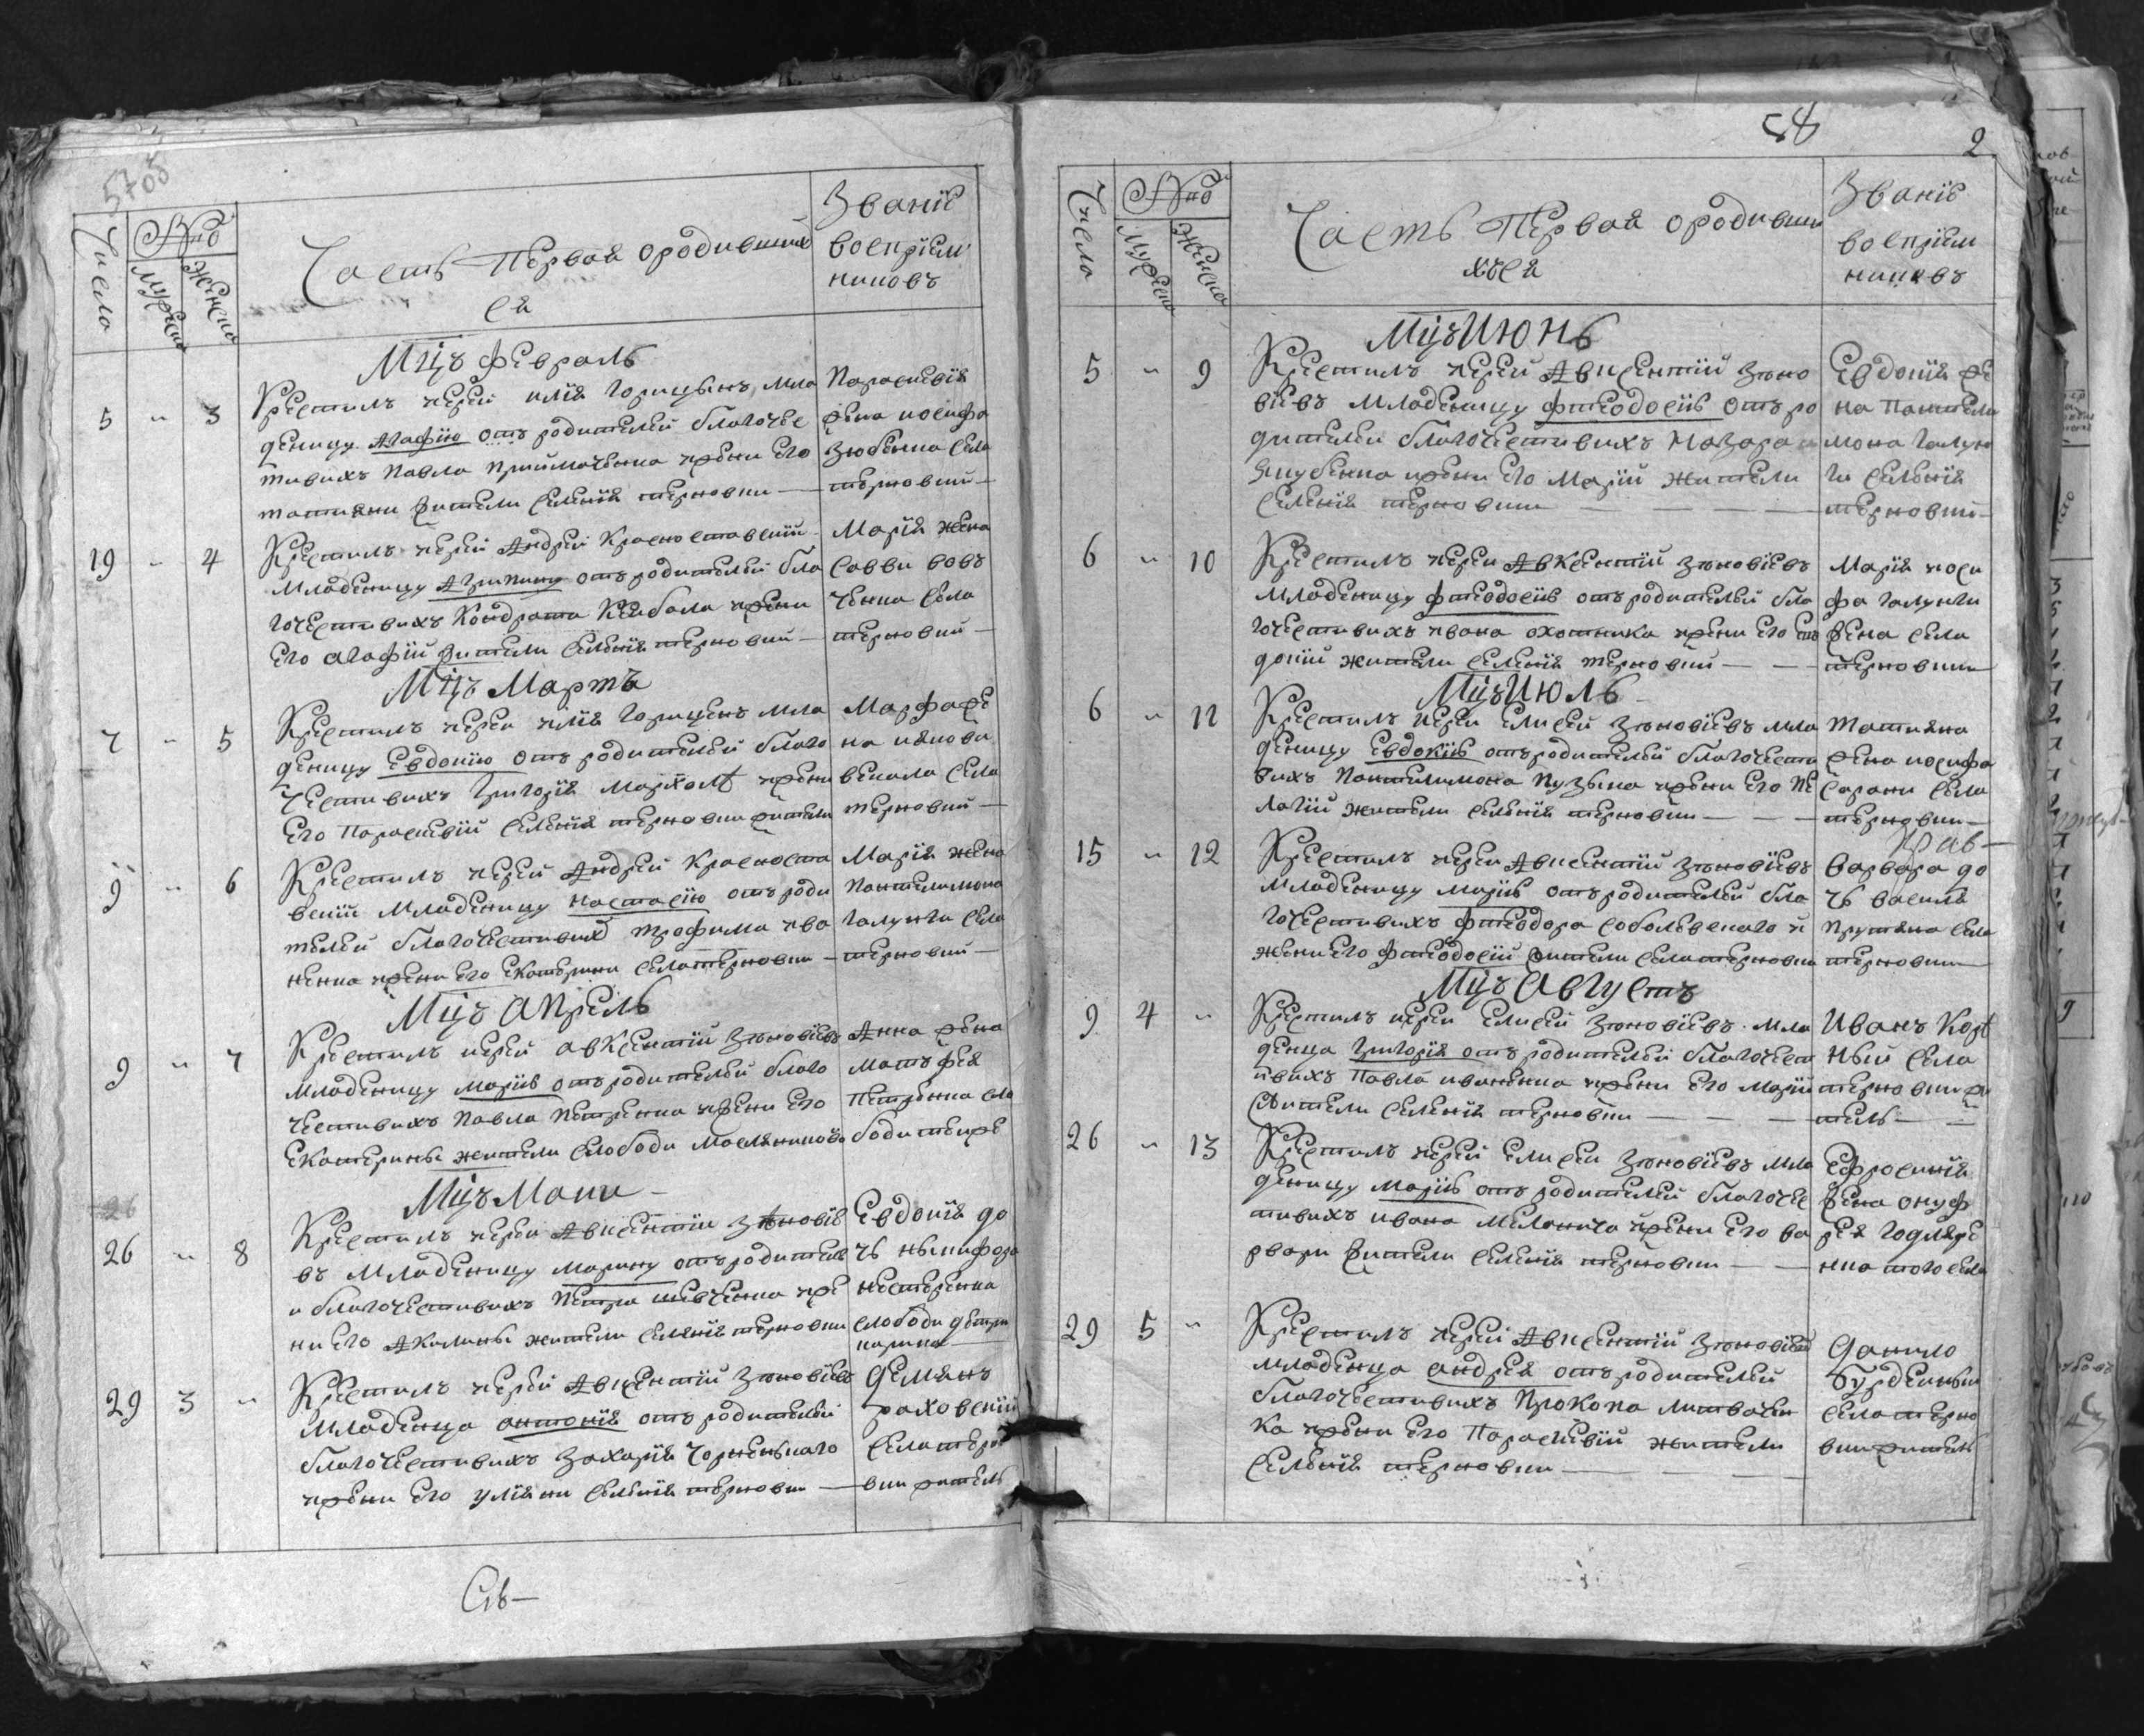 Числа
№
мужеска
женска
Часть Первая ородившихъ
ся
Званіе
воспріем
никовъ
Мцъ февраль
5 " 3
Крестилъ иерей илїя Горицынъ мла
деницу Агафїю отъ родителей благочес
тивихъ Павла Приймаченка ижени его
татияни жители селенїя терновки
Параскевїя
жена иосифа
Зюбенка села
терновки
19 - 4
Крестилъ иерей Андрей Красноставскїй
Младеницу Агрипину отъ родителей бла
гочестивихъ Кондрата Кейбала ижени
Его агафїи жители селенїя терновки
Марїя жена
Савви вовъ
ченка села
терновки
Мцъ Мартъ
7 - 5
Крестилъ иерей илїя Горицинъ мла
деницу Евдокїю отъ родителей благо
честивихъ Григорїя ижени
Его Параскевїи селенїя терновки жители
Марфа же
на
села
терновки
9 " 6
Крестилъ иерей Андрей Красноста
вскїй Младеницу Настасїю отъ роди
телей благочестивихъ трофима ива
ненка ижени Его Екатерини села терновки
Марїя жена
Пантелимона
галунки села
терновки
Мцъ Апрель
9 " 7
Крестилъ иерей авксентїй Зѣновїевъ
Младеницу марїю отъ родителей благо
честивихъ Павла Петренка ижени Его
Екатерины жители слободи Масляниковой
Анна жена
матъфея
Петренка сло
боди тоиже
Мцъ Маии
26 " 8
Крестилъ иерей Авксентїи Зѣновїе
въ Младеницу марину отъ родителе
и благочестивихъ Петра шевченка иже
ни его Акилины жители селенїя терновки
Евдокїя до
чъ никифора
нестеренка
слободи
29 3 "
Крестилъ иерей Авксентїй Зѣновїевъ
Младенца антонїя отъ родителей
благочестивихъ Захарїя Чорненкаго
ижени Его улїяни селенїя терновки
Демянъ
раховскїй
села терно
вки житель
Св
58
2
Числа
№
Мужеска
Женска
Часть Первая ородивши
хъся
Званіе
воспріем
никовъ
Мцъ Июнь
5 " 9
Крестилъ иерей Авксентїй Зѣно
вїевъ Младеницу Фтеодосїю отъ ро
дителей благочестивихъ Назара
Якубенка ижени Его Марїи жители
селенїя терновки
Евдокїя же
на Пантели
мона галун
ки селенїя
терновки
6 " 10
Крестилъ иерей Авксентїй Зѣновїевъ
Младеницу фтеодосїю отъ родителей бла
гочестивихъ ивана охотника ижени Его Ев
докїи жители селенїя терновки
Марїя иоси
фа галунки
жена села
терновки
Мцъ Июль
6 " 11
Крестилъ иерей Елисей Зѣновїевъ мла
деницу Евдокїю отъ родителей благочести
вихъ Пантелимона Пузына ижени Его Пе
лагїи жители селенїя терновки
Татияна
жена иосифа
Сарани села
терновки
15 " 12
Крестилъ иерей Авксентїй Зѣновїевъ
Младеницу марїю отъ родителей бла
гочестивихъ Фтеодора соболевскаго и
жени Его Фтеодосїи жители села терновки
Варвара до
чъ василя
Прутяна села
терновки
Мцъ Августъ
9 4 "
Крестилъ иерей Елисей Зѣновїевъ мла
денца Григорїя отъ родителей благочест
ивихъ Павла иваненка ижени Его Марїи
жители селенїя терновки
Иванъ
ный села
терновки жи
тель
26 " 13
Крестилъ иерей Елисеи Зѣновїевъ мла
деницу Марїю отъ родителей благочес
тивихъ ивана Меланича ижени Его ва
рвари жители селенїя терновки
Ефросинїя
жена онуф
рея
нка того села
29 5 "
Крестилъ иерей Авксентїй Зѣновїевъ
Младенца андрея отъ родителей
благочестивихъ Прокопа литвочен
ка ижени его Параскевїи жители
селенїя терновки
Данило
Бурденный
села терно
вки житель